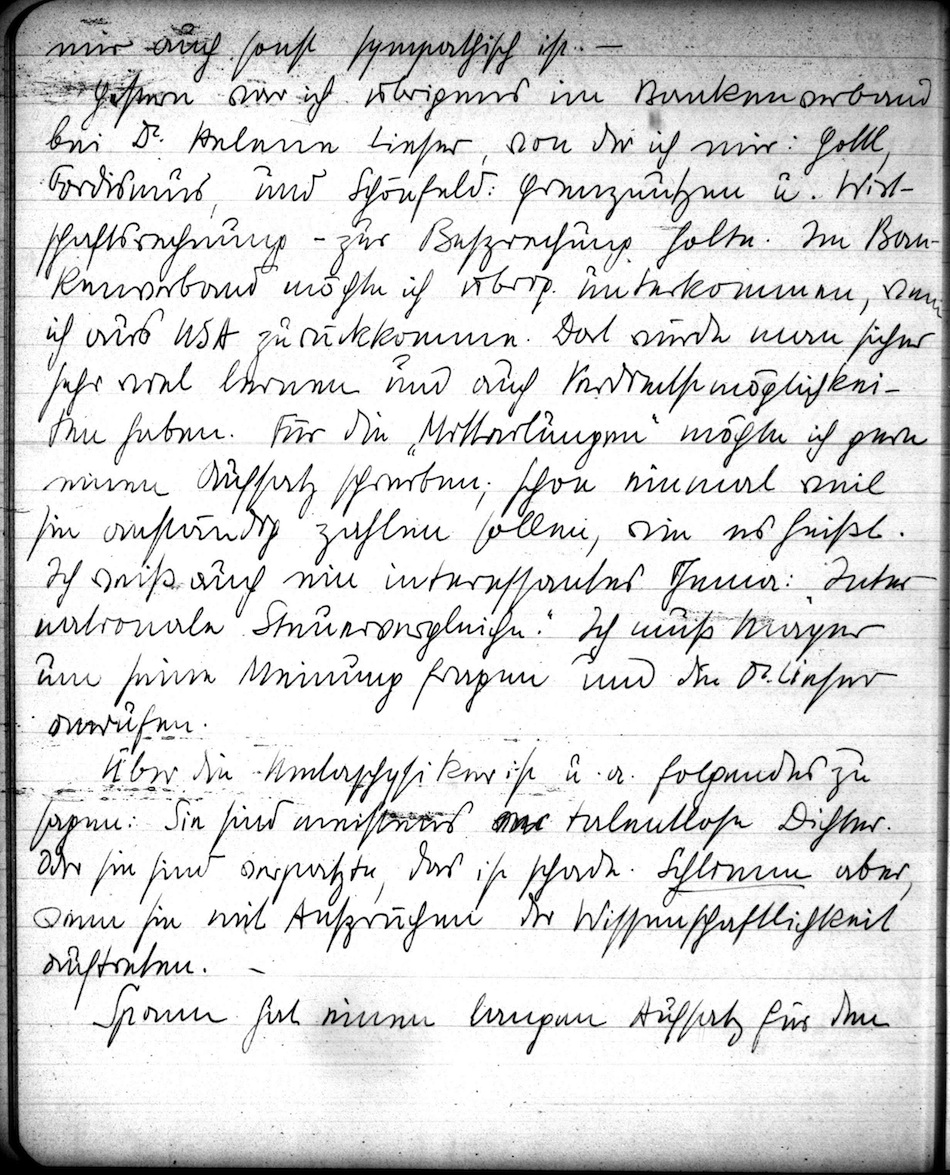 mir auch sonst sympathisch ist. –
Gestern war ich übrigens im Bankenverband
bei Dr. Helene Lieser, von der ich mir: Gottl,
Fordismus, und Schönfeld: Grenznutzen u. Wirt-
schaftsrechnung – zur Besprechung holte. Im Ban-
kenverband möchte ich übrig. unterkommen, wenn
ich aus USA zurückkomme. Dort würde man sicher
sehr viel lernen und auch Verdienstmöglichkei-
ten haben. Für die „Mitteilungen“ möchte ich gern
einen Aufsatz schreiben; schon einmal weil
sie anständig zahlen sollen, wie es heißt.
Ich weiß auch ein interessantes Thema: „Inter
nationale Steuervergleiche.“ Ich muß Mayer
um seine Meinung fragen und die Dr. Lieser
anrufen.
Über die Metaphysiker ist u. a. folgendes zu
sagen: Sie sind meistens talentlose Dichter.
Oder sie sind verpatzte, das ist schade. Schlimm aber,
wenn sie mit Ansprüchen der Wissenschaftlichkeit
auftreten. –
Spann hat einen langen Aufsatz für den